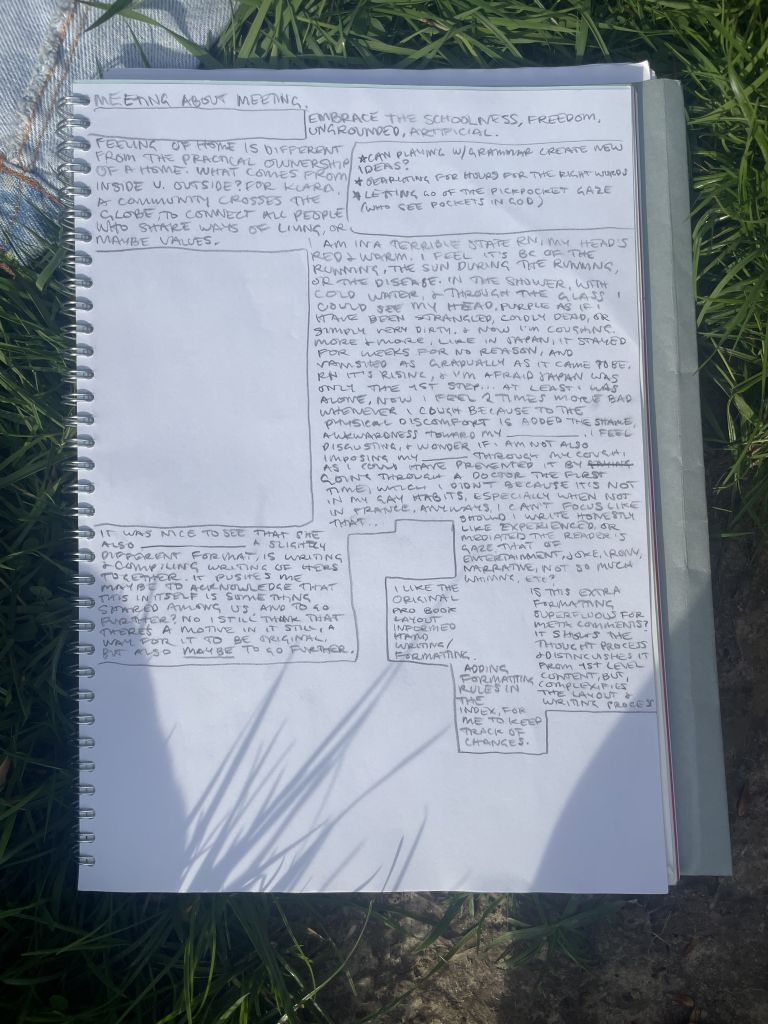 MEETING ABOUT MEETING.
EMBRACE THE SCHOOLNESS, FREEDOM,
UNGROUNDED, ARTIFICIAL.
FEELING OF HOME IS DIFFERENT
FROM THE PRACTICAL OWNERSHIP
OF A HOME. WHAT COMES FROM
INSIDE V. OUTSIDE? FOR KLARA.
A COMMUNITY CROSSES THE
GLOBE, TO CONNECT ALL PEOPLE
WHO SHARE WAYS OF LIVING, OR
MAYBE VALUES.
*CAN PLAYING W/GRAMMAR CREATE NEW
IDEAS?
* SEARCHING FOR HOURS FOR THE RIGHT WORDS
* LETTING GO OF THE PICKPOCKET GAZE
(WHO SEE POCKETS IN GOD)
I AM IN A TERRIBLE STATE RN, MY HEAD'S
RED & WARM. I FEEL IT'S BC OF THE
RUNNING, THE SUN DURING THE RUNNING,
OR THE DISEASE. IN THE SHOWER, WITH
COLD WATER, & THROUGH THE GLASS I
COULD SEE MY HEAD, PURPLE AS IF I
HAVE BEEN STRANGLED, COLDLY DEAD, OR
SIMPLY VERY DIRTY, & NOW I'M COUGHING.
MORE & MORE, LIKE IN JAPAN, IT STAYED
FOR WEEKS FOR NO REASON, AND
VANISHED AS GRADUALLY AS IT CAME TO BE.
RN IT'S RISING, & I'M AFRAID JAPAN WAS
ONLY THE 1ST STEP... AT LEAST I WAS
ALONE, NOW I FEEL 2 TIMES MORE BAD
WHENEVER I COUGH BECAUSE TO THE
PHYSICAL DISCOMFORT IS ADDED THE SHAME,
AWKWARDNESS TOWARD MY ________, I FEEL
DISGUSTING, & WONDER IF I AM NOT ALSO
IMPOSING MY _____ THROUGH MY COUGH,
AS I COULD HAVE PREVENTED IT BY
GOING THROUGH A DOCTOR THE FIRST
TIME, WHICH I DIDN'T BECAUSE IT'S NOT
IN MY HABITS, ESPECIALLY WHEN NOT
IN FRANCE, ANYWAYS, I CAN'T FOCUS LIKE
THAT...
IT WAS NICE TO SEE THAT SHE
ALSO ____ A SLIGHTLY
DIFFERENT FORMAT, IS WRITING
& COMPILING WRITING OF HERS
TOGETHER. IT PUSHES ME
MAYBE TO ACKNOWLEDGE THAT
THIS IN ITSELF IS SOMETHING
SHARED AMONG US, AND TO GO
FURTHER? NO I STILL THINK THAT
THERE'S A MOTIVE IN IT STILL, A
WAY FOR IT TO BE ORIGINAL.
BUT ALSO MAYBE TO GO FURTHER.
SHOULD I WRITE HONESTLY
LIKE EXPERIENCED, OR
MEDIATED THE READER'S
GAZE THAT OF
ENTERTAINMENT, JOKE, IRONY,
NARRATIVE, NOT SO MUCH
WHINING, ETC?
I LIKE THE
ORIGINAL
PRO BOOK
LAYOUT
INFORMED
HAND
WRITING/
FORMATTING.
ADDING
FORMATTING
RULES IN
THE
INDEX, FOR
ME TO KEEP
TRACK OF
CHANGES.
IS THIS EXTRA
FORMATTING
SUPERFLUOUS FOR
META COMMENTS?
IT SHOWS THE
THOUGHT PROCESS
& DISTINGUISHES IT
FROM 1ST LEVEL
CONTENT, BUT,
COMPLEXIFIES
THE LAYOUT &
WRITING PROCESS